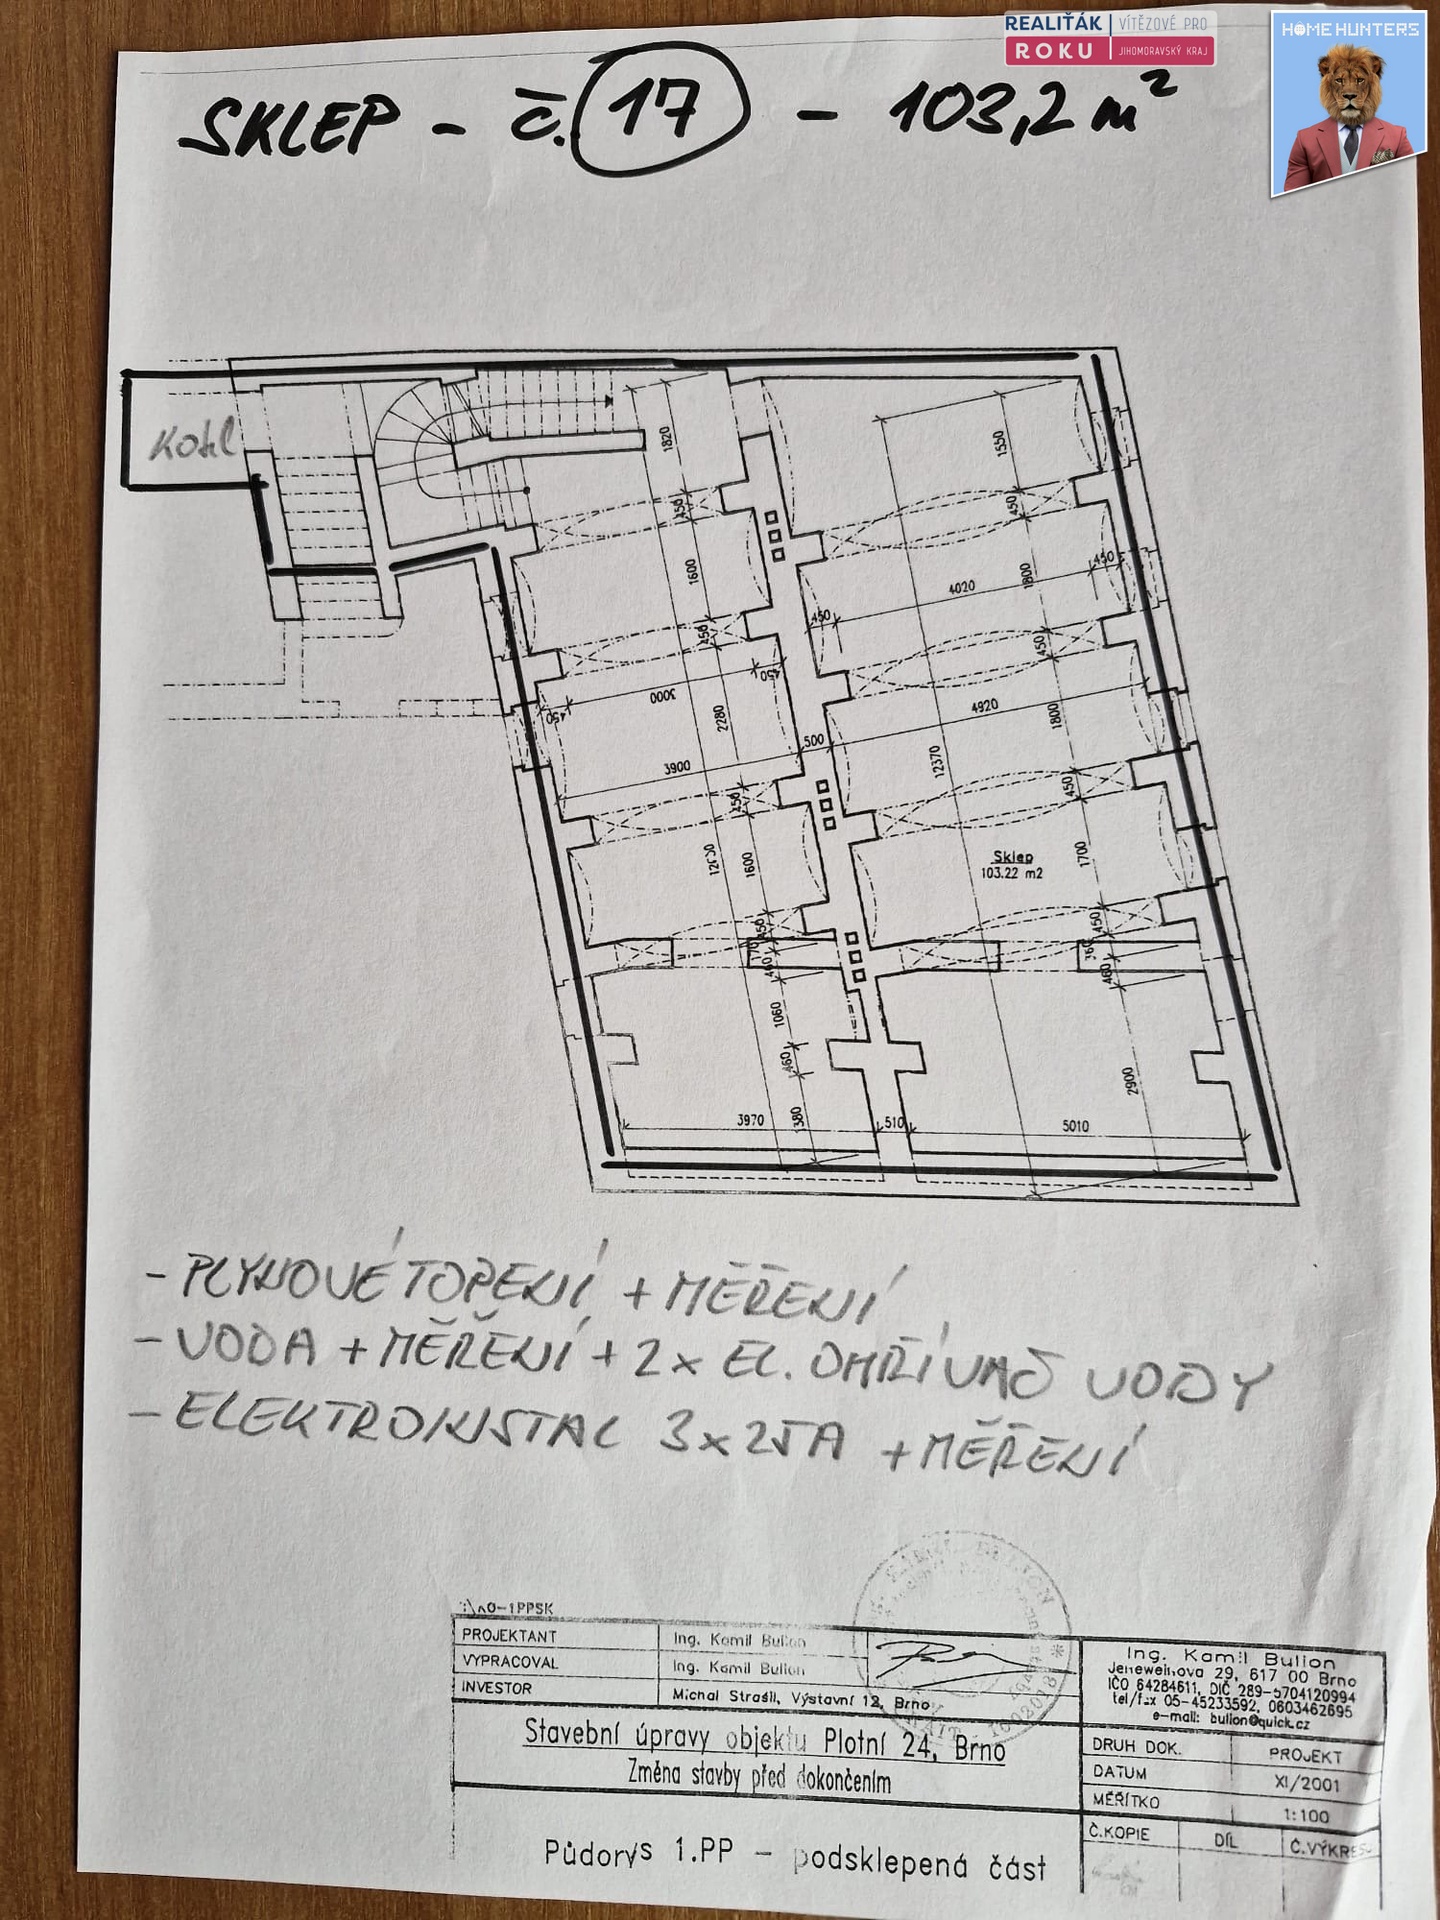 REALIŤÁK ROKU
VÍTĚZOVÉ PRO JIHOMORAVSKÝ KRAJ
HOME HUNTERS
SKLEP - č. 17 - 103,2 m²
Kotel
1820
1550
450
450
1600
1800
450
4020
450
450
450
3000
450
450
2280
4920
1800
500
3900
12370
450
450
1600
1700
Sklep
103.22 m2
450
450
460
460
1060
460
2900
3970
1380
510
5010
- PLYNOVÉ TOPENÍ + MĚŘENÍ
- VODA + MĚŘENÍ + 2x EL. OHŘÍVAČ VODY
- ELEKTROINSTAL 3x25A + MĚŘENÍ
PROJEKTANT Ing. Kamil Bulion
VYPRACOVAL Ing. Kamil Bulion
INVESTOR Michal Strašil, Výstavní 12, Brno
Stavební úpravy objektu Plotní 24, Brno
Změna stavby před dokončením
Půdorys 1.PP - podsklepená část
Ing. Kamil Bulion
Jeneweinova 29, 617 00 Brno
IČO 64284611, DIČ 289-5704120994
tel/fax 05-45233592, 0603462695
e-mail: bulion@quick.cz
DRUH DOK. PROJEKT
DATUM XI/2001
MĚŘÍTKO 1:100
Č.KOPIE DÍL Č.VÝKRESU